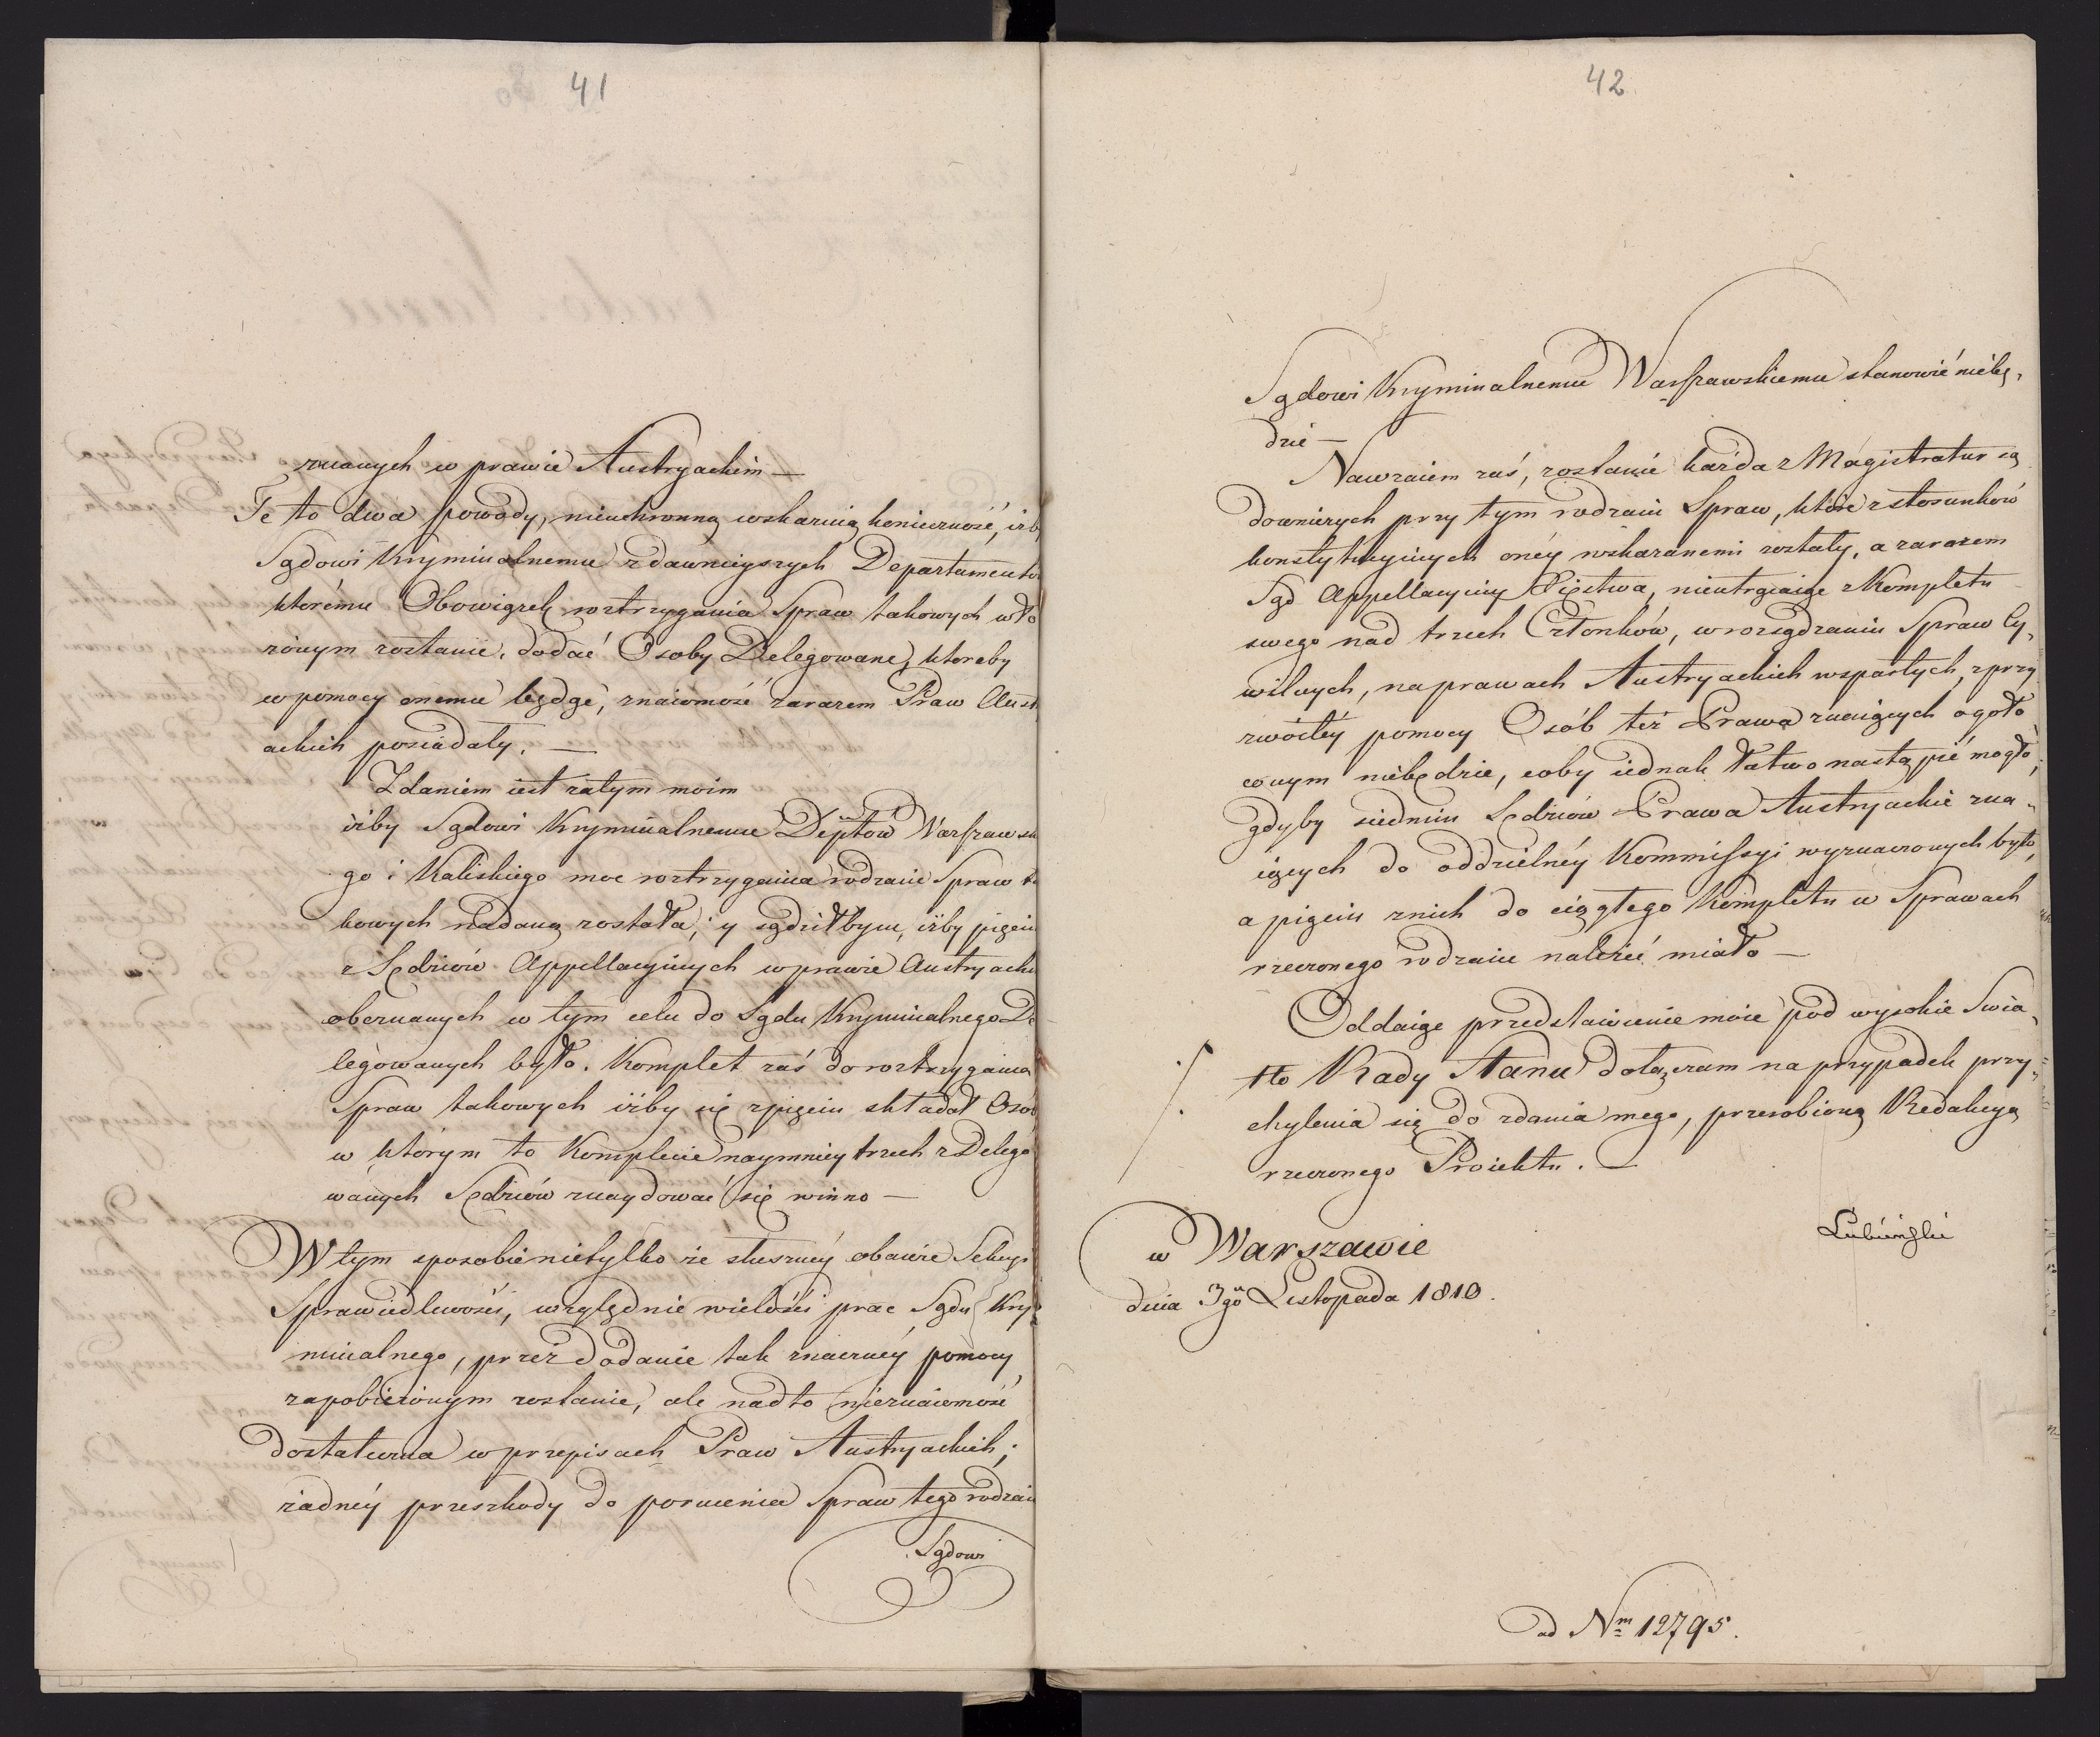 41
znanych w prawie Austryackim —
Te to dwa powody, nieuchronną wskazuią konieczność, iżb
Sądowi Kryminalnemu z dawnieyszych Departamentó
któremu Obowiązek roztrzygania Spraw takowych wło
żonym zostanie, dodać Osoby Delegowane, ktoreby
w pomocy onemu będąc, znaiomość zarazem Praw Aust
ackich posiadały. —
Zdaniem iest zatym moim
iżby Sądowi Kryminalnemu Dẽptów Warszawsk
go i Kaliskiego moc roztrzygania rodzaiu Spraw ta
kowych nadaną została, y sądziłbym, iżby pięciu
z Sędziów Appellacyinych w prawie Austryacki
obeznanych w tym celu do Sądu Kryminalnego De
legowanych było. Komplet zaś do roztrzygania
Spraw takowych iżby się z pięciu składał Osób
w którym to Komplecie naymniey trzech z Delego
wanych Sędziów znaydować się winno —
W tym sposobie nietylko że słuszney obawie Sekcyi
Sprawiedlwości, względnie wielości prac Sądu Kry
minalnego, przez dodanie tak znaczney pomocy
zapobieżonym zostanie, ale nadto nieznaiomość
dostateczna w przepisach Praw Austryackich,
żadney przeszkody do poruczenia Spraw tego rodzaiu
Sądowi
42
Sądowi Kryminalnemu Warszawskiemu stanowić niebę„
dzie —
Nawzaiem zaś, zostanie każda z Magistratur są
downiczych przy tym rodzaiu Spraw, które z stosunków
konstytucyinych oney wskazanemi zostały, a zarazem
Sąd Appellacyiny Xięstwa, nieutrącaiąc z Kompletu
swego nad trzech Członków, w rozsądzaniu Spraw Cy„
wilnych, na prawach Austryackich wspartych, z przy
zwoitey pomocy Osób też Prawa znaiących ogoło
conym niebędzie, coby iednak łatwo nastąpić mogło,
gdyby siedmiu Sędziów Prawa Austryackie zna„
iących do oddzielney Kommissyi wyznaczonych było,
a pięciu z nich do ciągłego Kompletu w Sprawach
rzeczonego rodzaiu należeć miało —
Oddaiąc przedstawienie moie pod wysokie Świa„
tło Rady Stanu dołączam na przypadek przy„
chylenia się do zdania mego, przerobioną Redakcyą
rzeczonego Proiektu. —
Łubieński
w Warszawie
dnia 3go Listopada 1810.
ad Nm 12795.